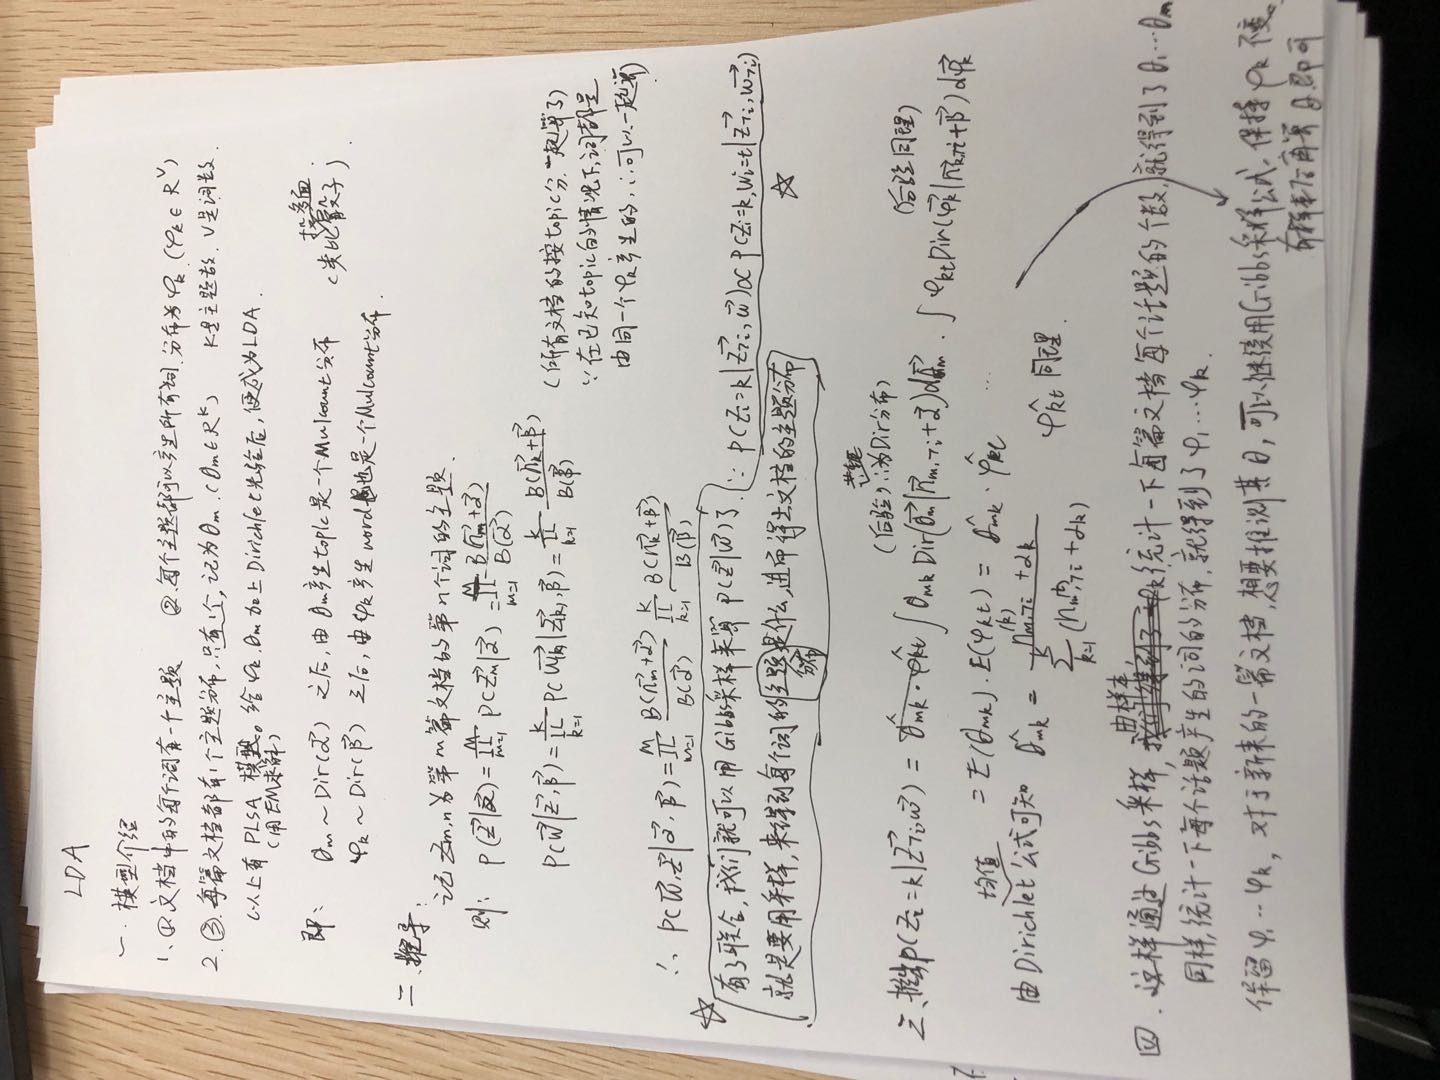 LDA
一. 模型介绍
1. ①文档中的每个词有一个主题 ②.每个主题都可以产生所有词.分布为φk.(φk∈R^V)
2. ③.每篇文档都有1个主题分布,只有1个,记为θm.(θm∈R^K) K是主题数. V是词数.
以上有 PLSA 模型。给φk.θm加上Dirichlet先验后,便成为LDA.
(用EM求解)
即: θm ~ Dir(α→) 之后,由θm产生topic是一个Mulcount分布 (类比投多面骰子).
φk ~ Dir(β→) 之后,由φk产生word也是一个Mulcount分布.
二.推导:
记Zm,n为第m篇文档的第n个词的主题.
则: P(Z→|α→) = ∏_{m=1}^{M} P(Z→m|α→) = ∏_{m=1}^{M} B(n→m+α→)/B(α→)
P(w→|Z→,β→) = ∏_{k=1}^{K} P(w→k|Z→k,β→) = ∏_{k=1}^{K} B(n→k+β→)/B(β→) (所有文档的按topic分.一起算了)
∵在已知topic的情况下,词都是
由同一个φk产生的.∴可以一起算)
∴ P(w→,Z→|α→,β→) = ∏_{m=1}^{M} B(n→m+α→)/B(α→) ∏_{k=1}^{K} B(n→k+β→)/B(β→)
☆ 有了联合,我们就可以用Gibbs采样来算 P(Z→|w→)了. ∵ P(Zi=k|Z→¬i,w→)∝P(Zi=k,Wi=t|Z→¬i,w→¬i)
就是要用采样,来得到每个词的主题分布是什么,进而得出文档的主题分布 ☆
共轭
(后验)∴为Dir分布) (后验同理)
三.推出p(Zi=k|Z→¬i,w→) = θ̂mk·φ̂kt ∫θmk Dir(θ→m|n→m,¬i+α→)dθ→m . ∫φkt Dir(φ→k|n→k,¬i+β→)dφ→k
= E(θmk).E(φkt) = θ̂mk·φ̂kt ...
均值
由Dirichlet公式可知 θ̂mk = (n^(k)_{m,¬i}+αk)/(∑_{k=1}^{K}(n^(t)_{m,¬i}+αk)) φ̂kt同理.
四.这样通过Gibbs采样,由样本统计一下每篇文档每个话题的个数,就得到了θ1…θm
同样,统计一下每个话题产生的词的分布,就得到了φ1…φk.
保留φ1…φk, 对于新来的一篇文档,想要推测其θ,可以继续用Gibbs采样公式.保持φk不变.
有样本后再算θ即可